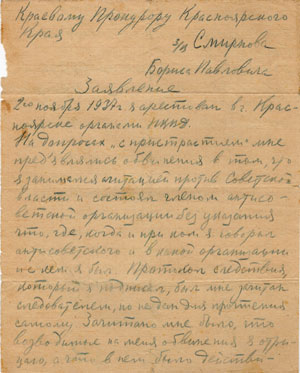 Краевому Прокурору Красноярского
Края
з/к Смирнова
Бориса Павловича
Заявление
2го ноября 1937 г я арестован в г. Крас-
ноярске органами НКВД.
На допросах, с пристрастием мне
предъявлялись обвинения в том, что
я занимался агитацией против Советской
власти и состоял членом антисо-
ветской организации без указания
что, где, когда и при ком я говорил
антисоветского и в какой организации
и с кем я был. Протокол следствия,
который я подписал, был мне зачитан
следователем, но не дан для прочтения
самому. Зачитано мне было, что
возводимые на меня обвинения я отри-
цаю, а что в нем было действи-